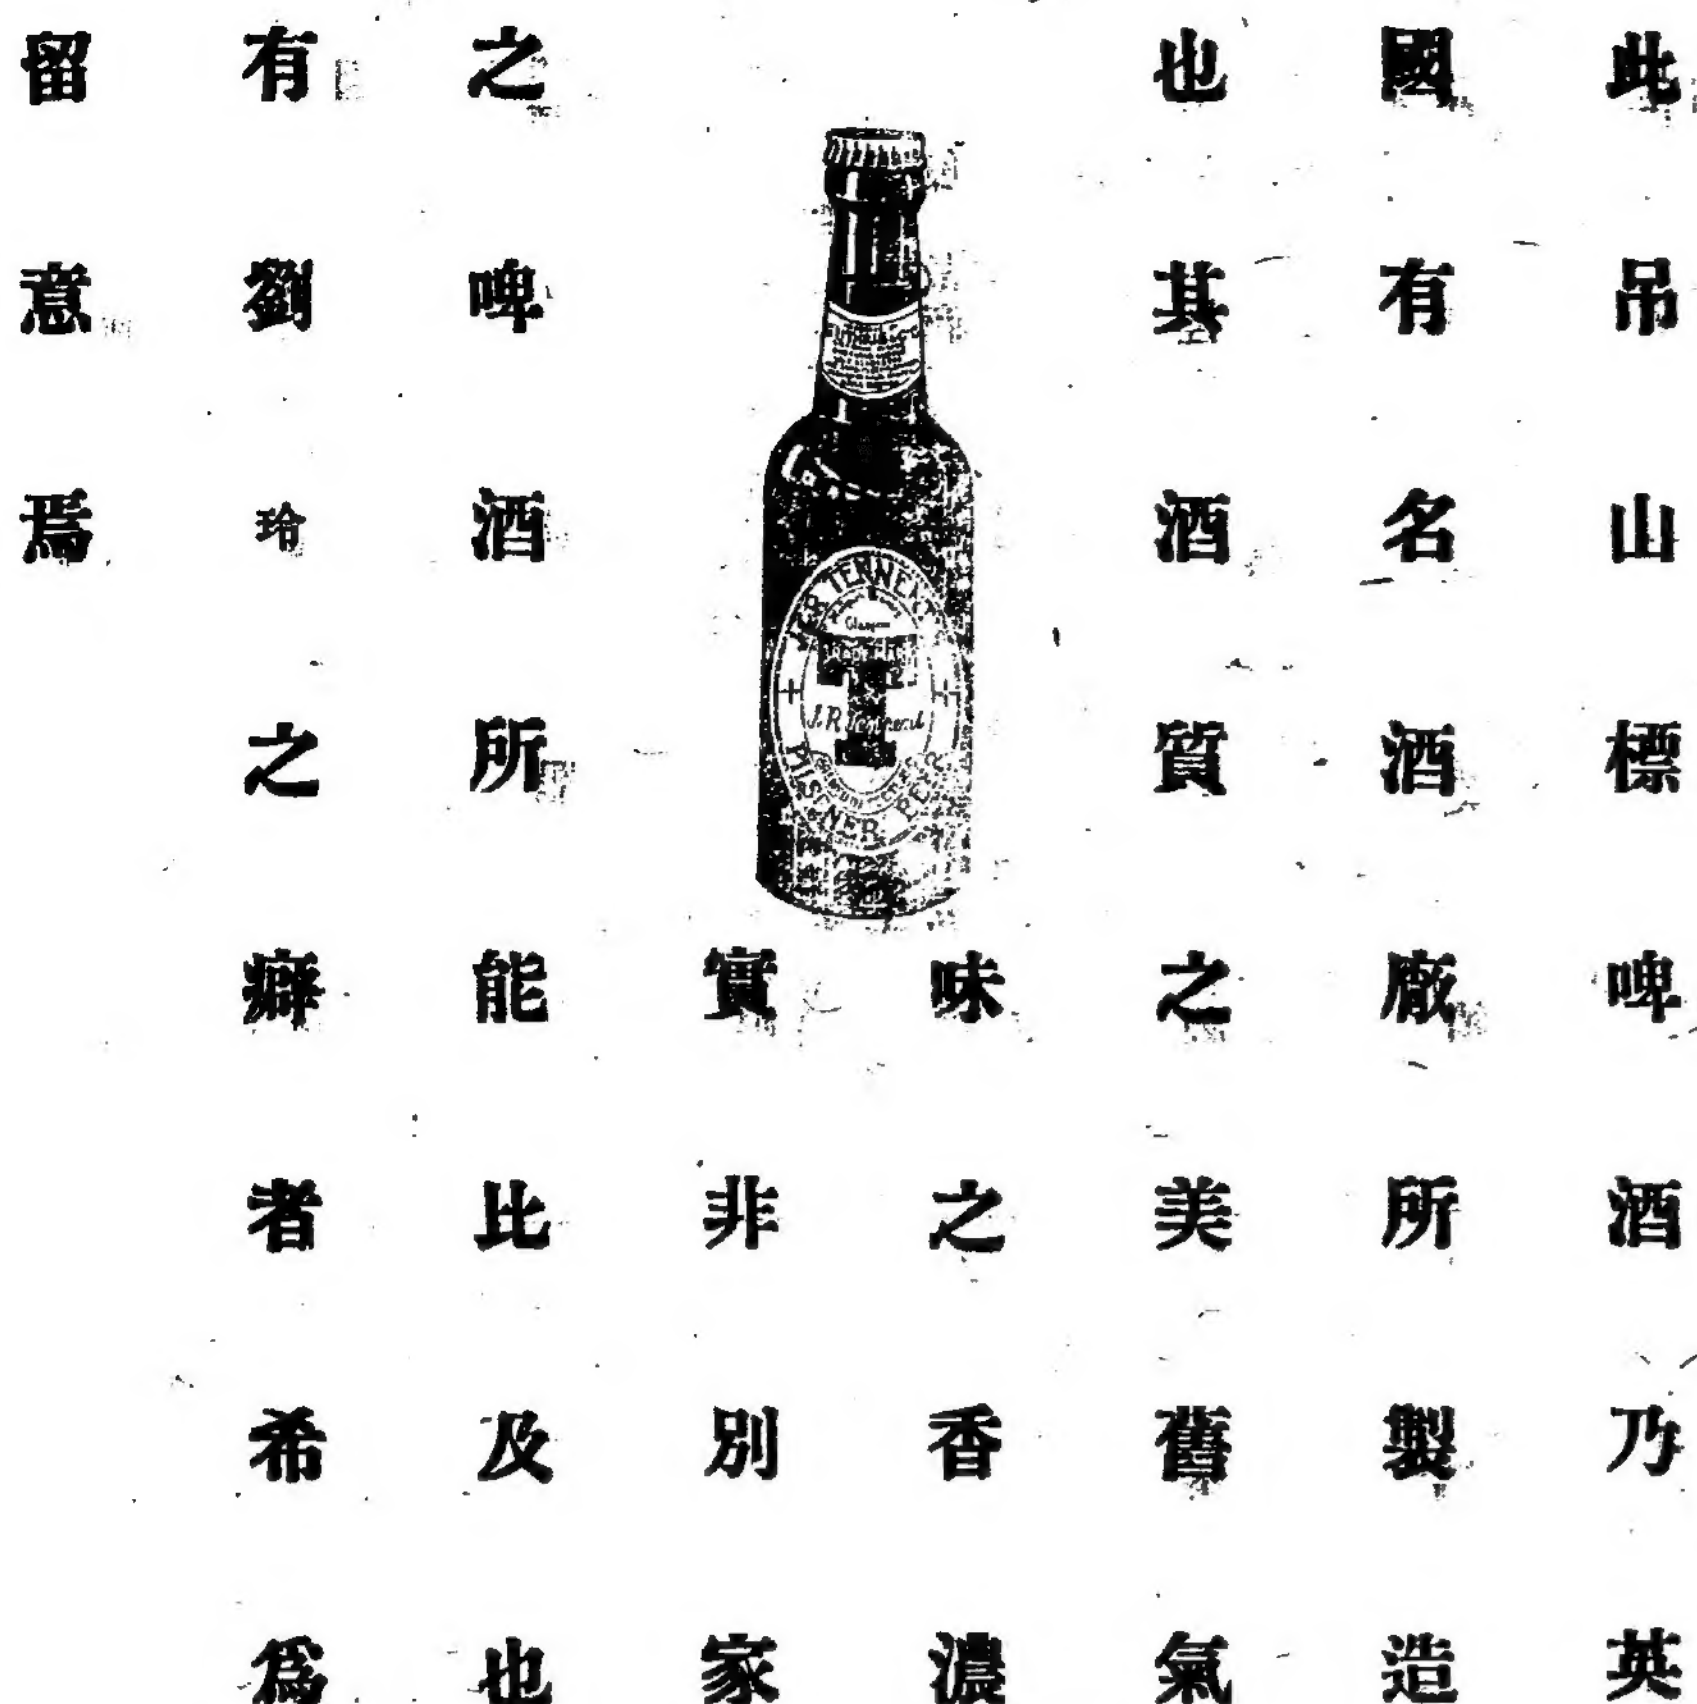 此吊山標啤酒乃英
國有名酒廠所製造
也其酒質之美舊氣
味之香濃
實非別家
之啤酒所能比及也
有劉玲之癖者希爲
留意焉
TENNENT
Glasgow
TRADE MARK
J.R. Tennent
PILSENER BEER